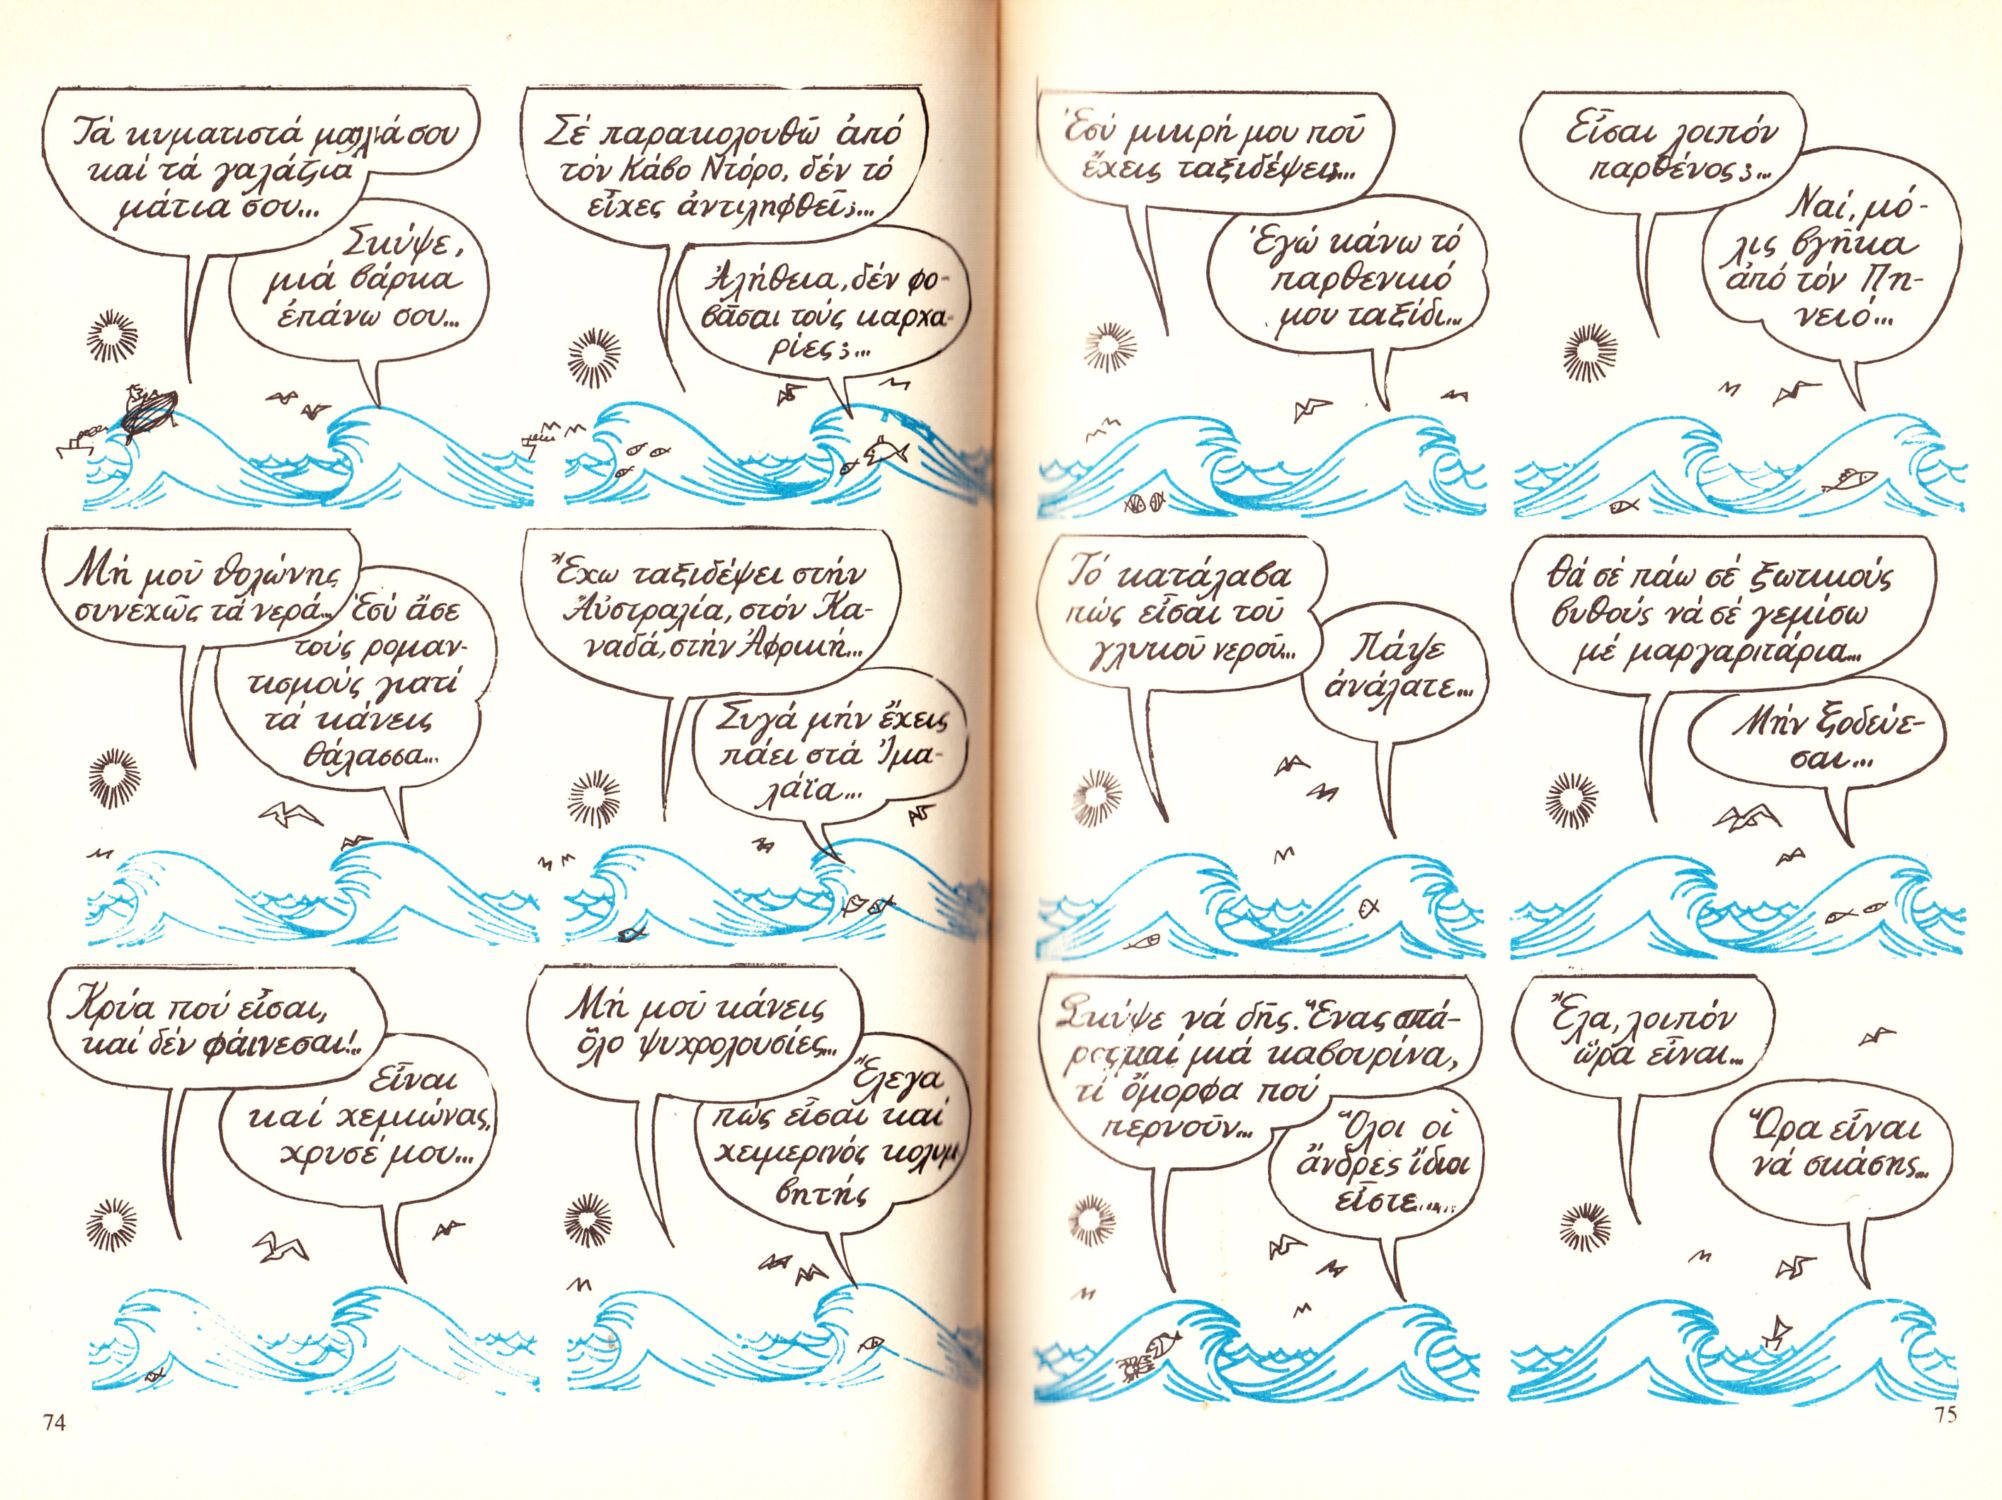 Τά κυματιστά μαλλιά σου
καί τά γαλάζια
μάτια σου...
Σκύψε,
μιά βάρκα
ἐπάνω σου...
Σέ παρακολουθῶ ἀπό
τόν Κάβο Ντόρο, δέν τό
εἶχες ἀντιληφθεῖ;...
Ἀλήθεια, δέν φο-
βᾶσαι τούς καρχα-
ρίες;...
Μή μοῦ θολώνης
συνεχῶς τά νερά...
Ἐσύ ἄσε
τούς ρομαν-
τισμούς γιατί
τά κάνεις
θάλασσα...
Ἔχω ταξιδέψει στήν
Αὐστραλία, στόν Κα-
ναδά, στήν Ἀφρική...
Σιγά μήν ἔχεις
πάει στά Ἰμα-
λάϊα...
Κρύα πού εἶσαι,
καί δέν φάινεσαι!..
Εἶναι
καί χειμώνας,
χρυσέ μου...
Μή μοῦ κάνεις
ὅλο ψυχρολουσίες...
Ἔλεγα
πώς εἶσαι καί
χειμερινός κολυμ
βητής
74
Ἐσύ μικρή μου ποῦ
ἔχεις ταξιδέψει;...
Ἐγώ κάνω τό
παρθενικό
μου ταξίδι...
Εἶσαι λοιπόν
παρθένος;...
Ναί, μό-
λις βγῆκα
ἀπό τόν Πη-
νειό...
Τό κατάλαβα
πώς εἶσαι τοῦ
γλυκοῦ νεροῦ...
Πάψε
ἀνάλατε...
Θά σέ πάω σέ ξωτικούς
βυθούς νά σέ γεμίσω
μέ μαργαριτάρια...
Μήν ξοδεύε-
σαι...
Σκύψε νά δῆς. Ἕνας σπά-
ρος καί μιά καβουρίνα,
τί ὄμορφα πού
περνοῦν...
Ὅλοι οἱ
ἄνδρες ἴδιοι
εἶστε......
Ἔλα, λοιπόν
ὥρα εἶναι...
Ὥρα εἶναι
νά σκάσης...
75